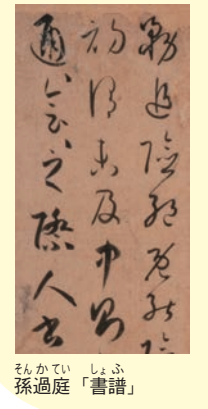 務追險絕既能險
初謂未及中則
通會之際人書
そんかてい しょふ
孫過庭「書譜」